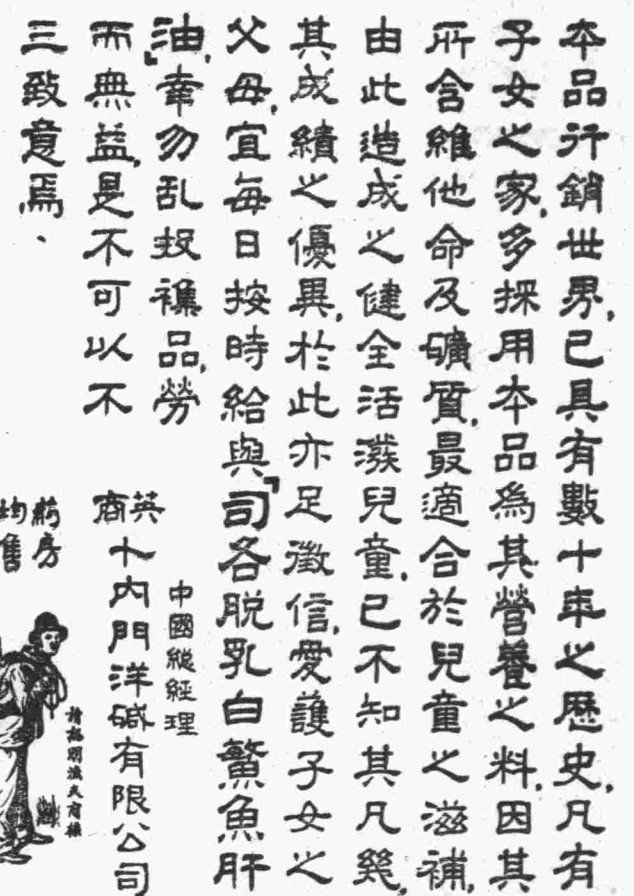 本品行銷世界，已具有數十年之歷史，凡有
子女之家，多採用本品為其營養之料，因其
所含維他命及礦質，最適合於兒童之滋補，
由此造成之健全活潑兒童，已不知其凡幾，
其成績之優異，於此亦足徵信，愛護子女之
父母，宜每日按時給與『司各脫乳白鰵魚肝
油』，幸勿乱投襍品，勞
而無益，是不可以不
三致意焉、
中國總經理
英商
卜內門洋碱有限公司
藥房
均售
請認明漁夫商標